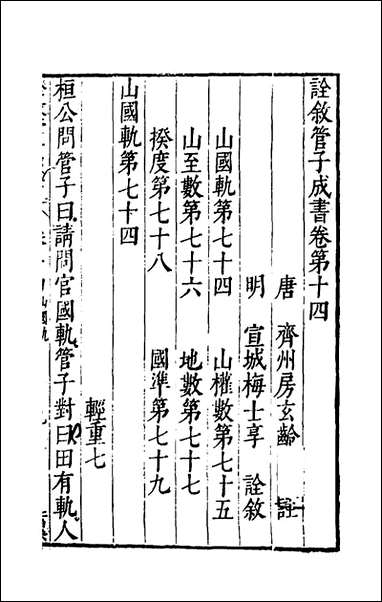 詮敘管子成書卷第十四
唐 齊州房玄齡 註
明 宣城梅士享 詮敘
山國軌第七十四 山權數第七十五
山至數第七十六 地數第七十七
揆度第七十八 國準第七十九
山國軌第七十四
輕重七
桓公問管子曰請問官國軌管子對曰田有軌人